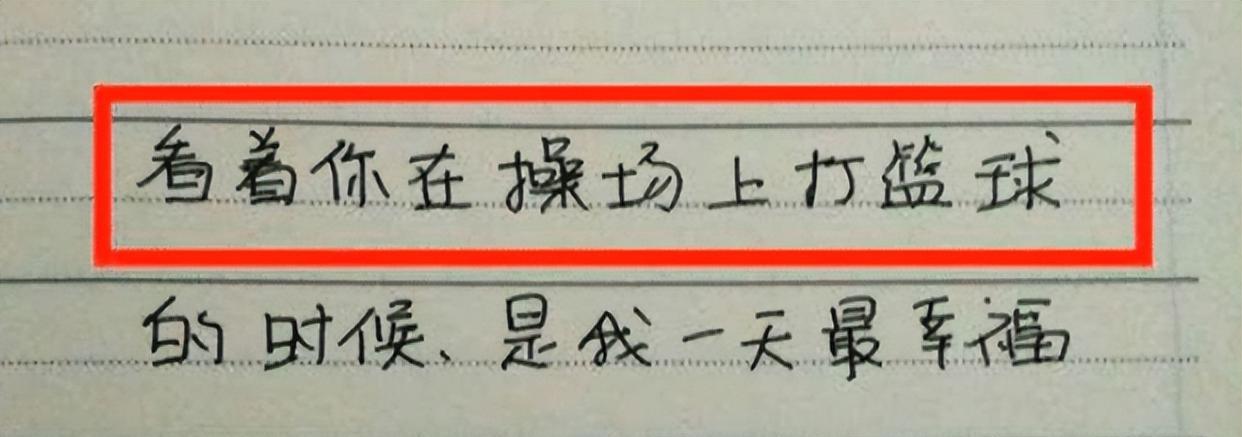 看着你在操场上打篮球
的时候、是我一天最幸福